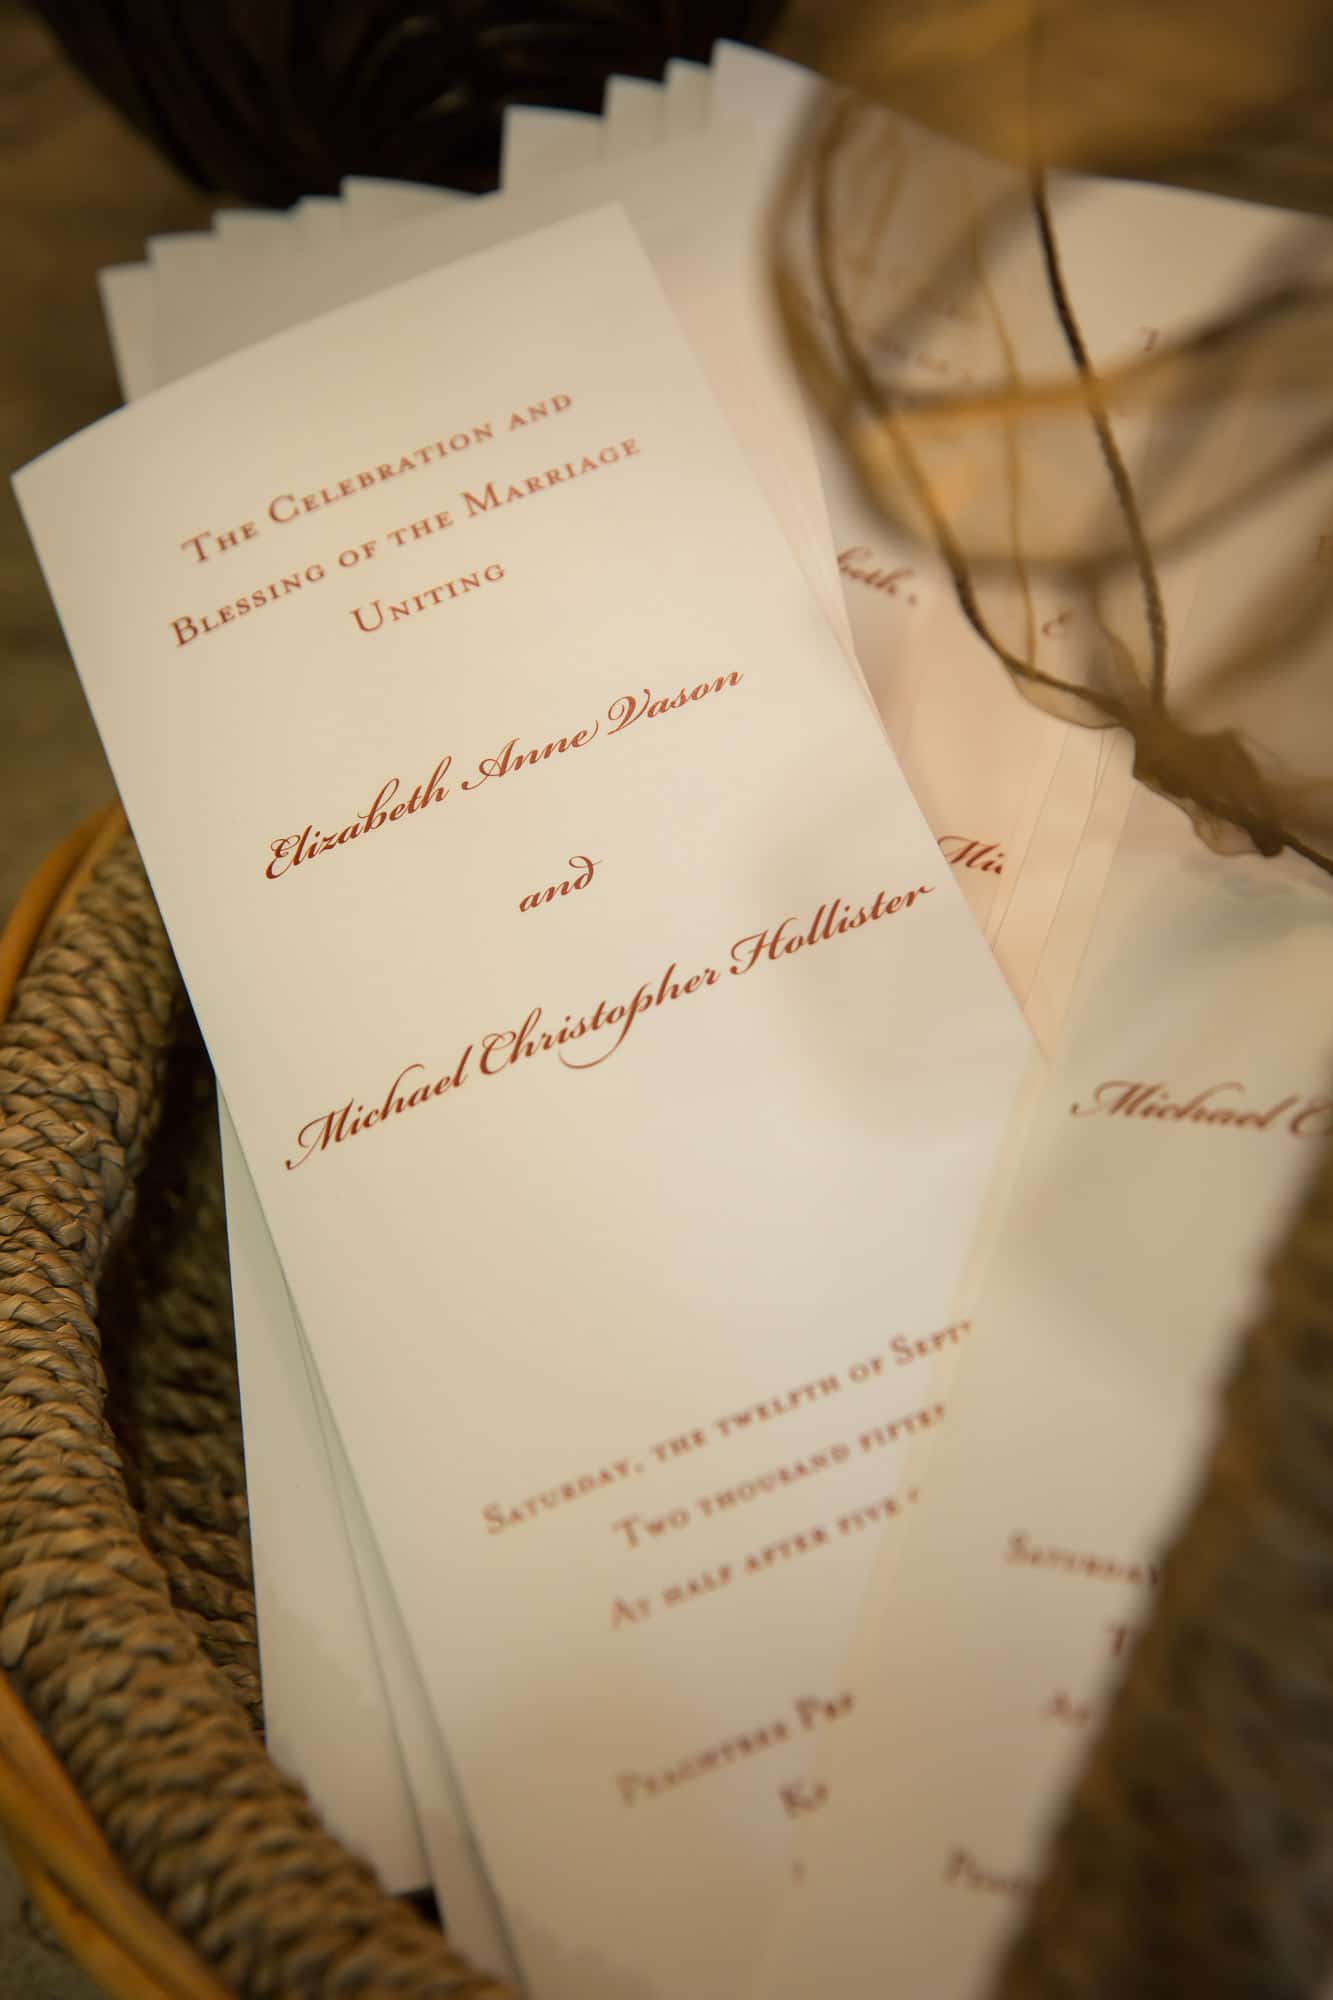 The Celebration and
Blessing of the Marriage
Uniting
Elizabeth Anne Vason
and
Michael Christopher Hollister
Saturday, the twelfth of Sept
Two thousand fifteen
At half after five
Peachtree
Michael C
Saturday